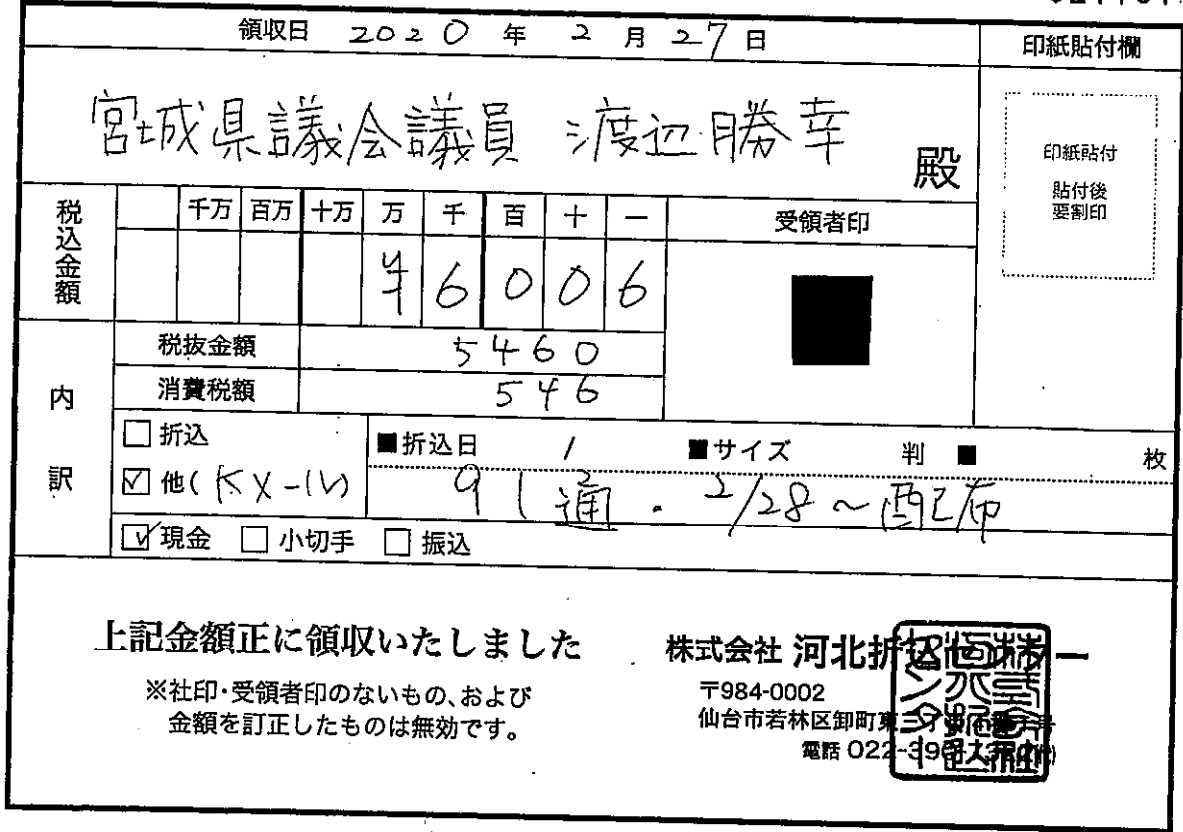 領収日 2020 年 2 月 27 日
印紙貼付欄
宮城県議会議員 渡辺勝幸 殿
印紙貼付
貼付後
要割印
税込金額
千万 百万 十万 万 千 百 十 一
受領者印
¥6006
内訳
税抜金額 5460
消費税額 546
□ 折込
■折込日 / ■サイズ 判 ■ 枚
☑ 他(
91通. 2/28~配布
☑ 現金 □ 小切手 □ 振込
上記金額正に領収いたしました
※社印・受領者印のないもの、および
金額を訂正したものは無効です。
株式会社 河北折込センター
〒984-0002
仙台市若林区卸町東
電話 022-39